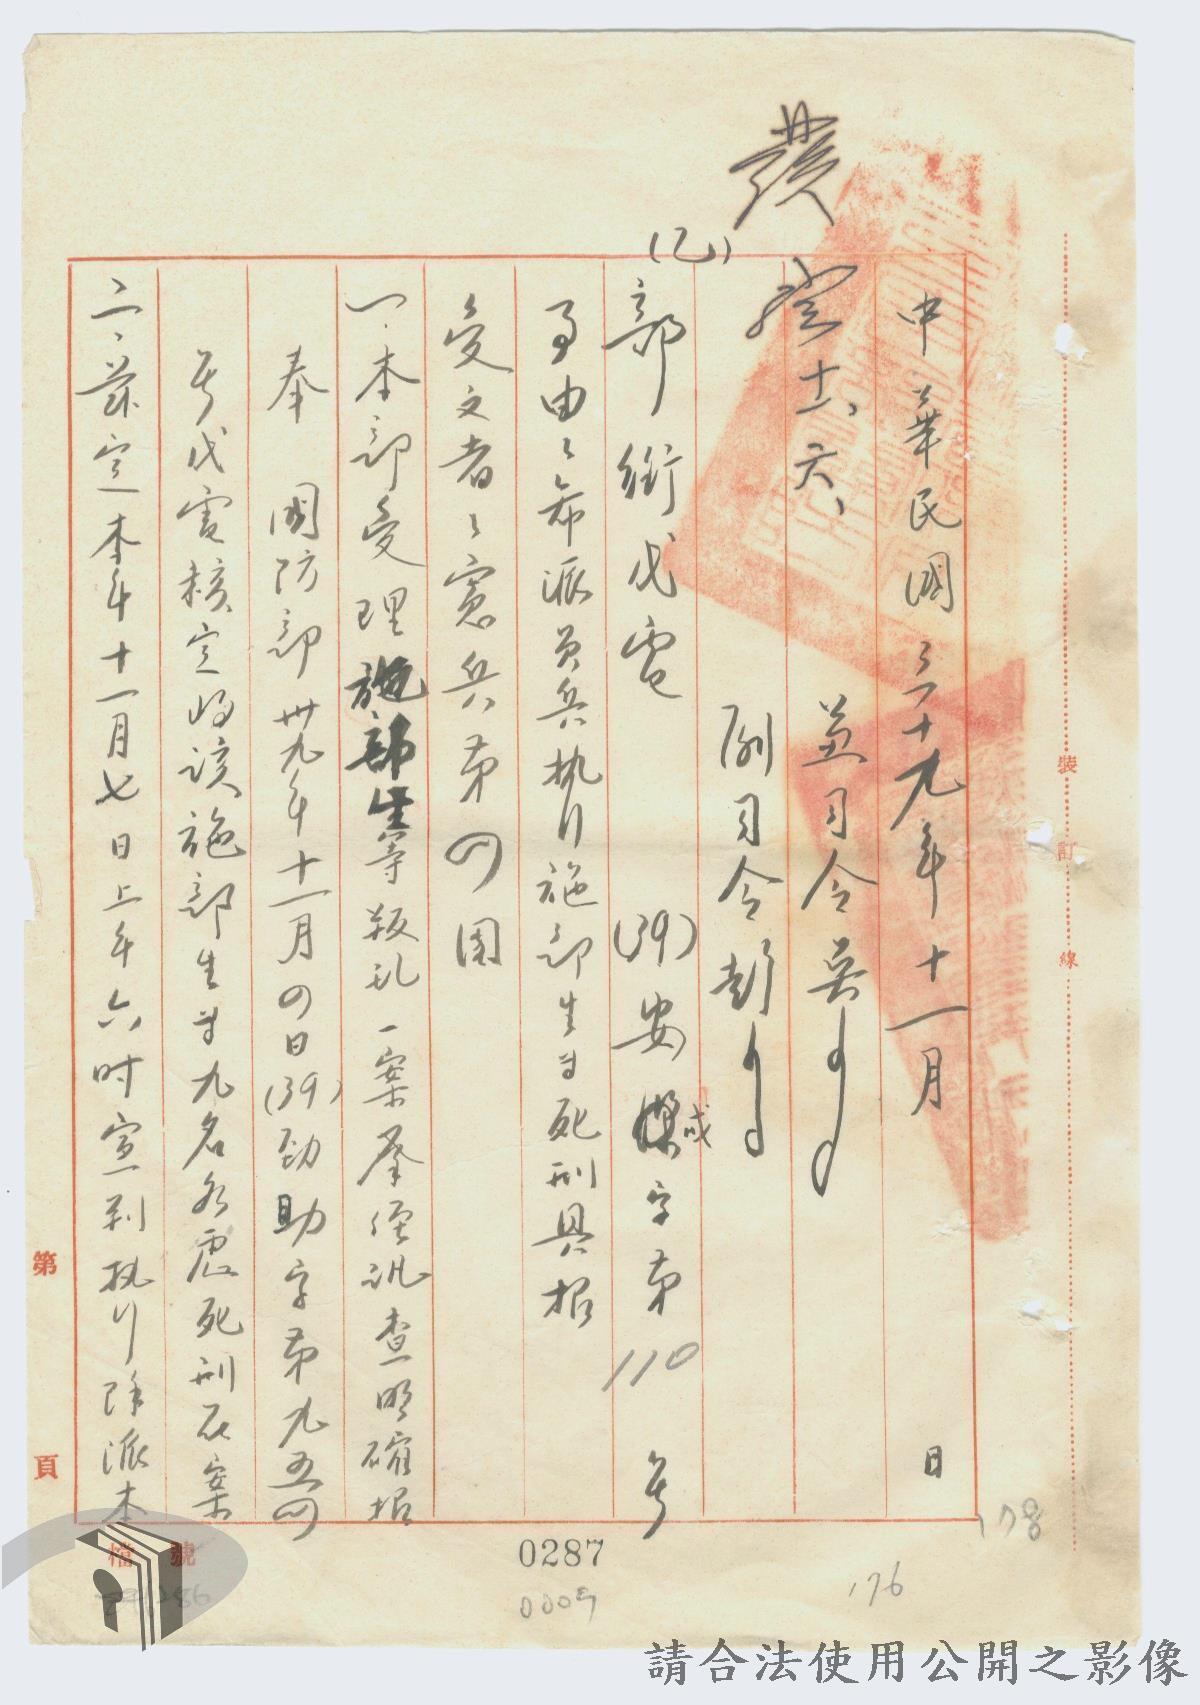 發
中華民國三十九年十一月　日
兼司令吳
副司令彭
登十一、六、
(乙)
部銜代電　(39)安潔字第110號
成
事由：希派員兵執行施部生等死刑具報
受文者：憲兵第四團
一、本部受理施部生等叛亂一案業經訊查明確報
奉　國防部卅九年十一月四日(39)勁助字第九五四
號代電核定將該施部生等九名各處死刑在案
二、茲定本年十一月七日上午六時宣判執行除派本
裝
訂
線
第
頁
檔
號
0287
178
176
請合法使用公開之影像